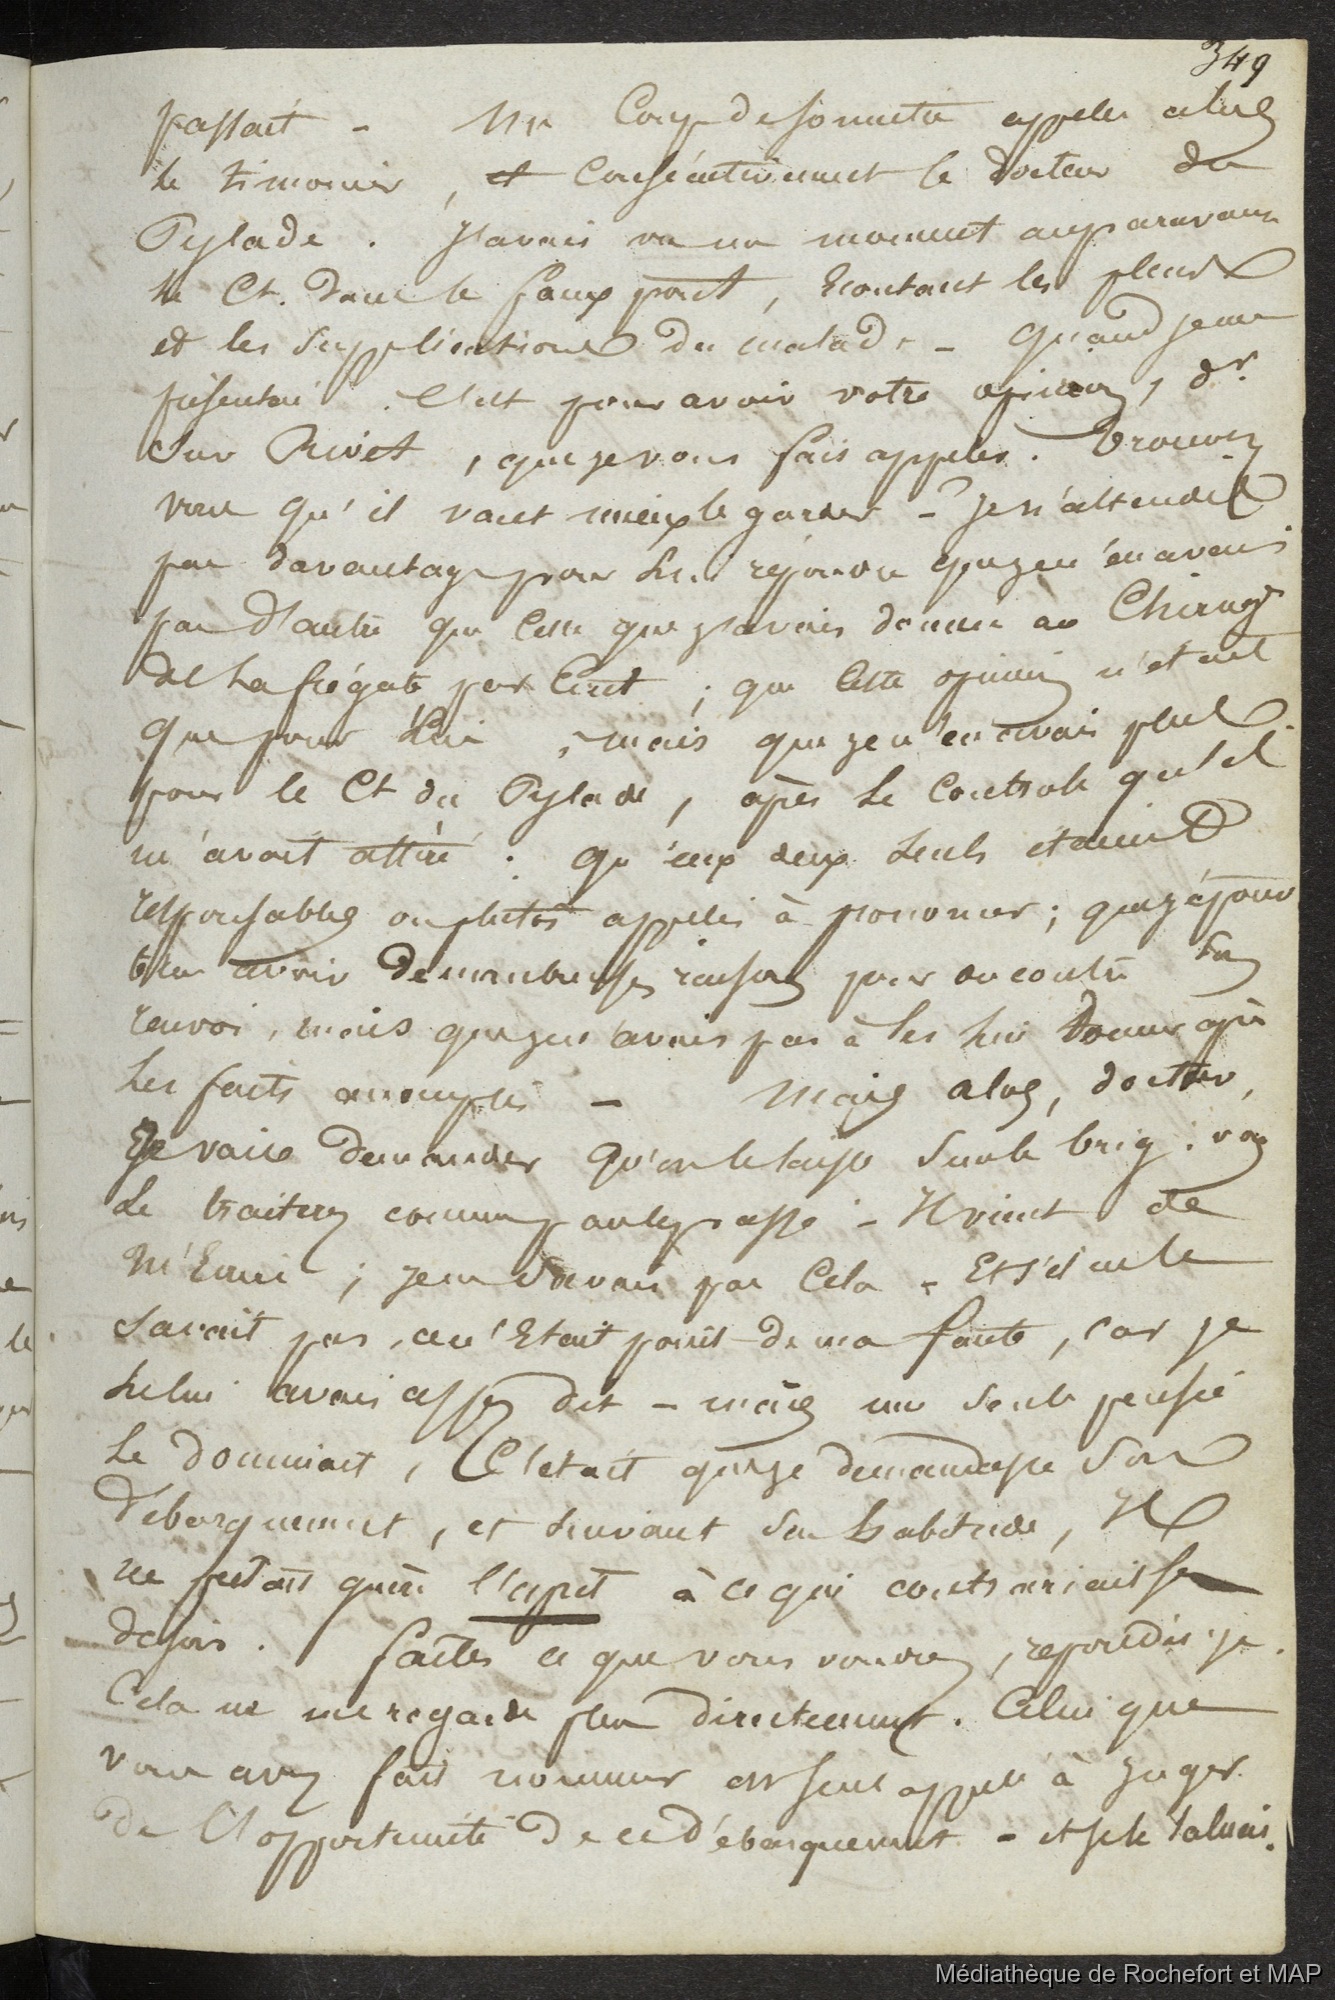 349
passait - Un coup de sonnette appela alors
le timonier, et consécutivement le docteur du
Pylade. J'avais vu un moment auparavant
le Ct. dans le faux pont, Ecoutant les pleurs
et les supplications du malade - Quand je me
présentai. C'est pour avoir votre opinion, dr.
sur Rivet, que je vous fais appeler. Trouvez
vous qu'il vaut mieux le garder - ? Je n'attendis
pas davantage pour lui répondre que je n'en avais
pas d'autre que celle que j'avais donnée au Chirugn
de la frégate par Ecrit; que cette opinion n'était
que pour lui, mais que je n'en avais plus
pour le Ct du Pylade, après le Controle qu'il
m'avait attiré: qu'eux deux seuls étaient
responsables ou plutôt appelés à prononcer; que je pouv
bien avoir de nombreuses raisons pour ou contre son
renvoi, mais que je n'avais pas à les lui donner après
les faits accomplis - Mais alors, docteur,
Je vais demander qu'on le laisse sur le brig: vous
le traiterez comme par le passé - Il vient de
M'Ecrire; je ne savais pas Cela - Et s'il ne le
savait pas, ce n'Etait point de ma faute, car je
le lui avais assez dit - mais une seule pensée
le dominait, C'était que je demandasse son
débarquement, et suivant son habitude, Il
ne prêtait guère l'esprit à ce qui contrariait ses
désirs. faites ce que vous voudrez, repondis-je.
Cela ne me regarde plus directement. Celui que
vous avez fait nommer est seul appelé à juger
de l'opportunité de ce débarquement - et je le saluai.
Médiathèque de Rochefort et MAP